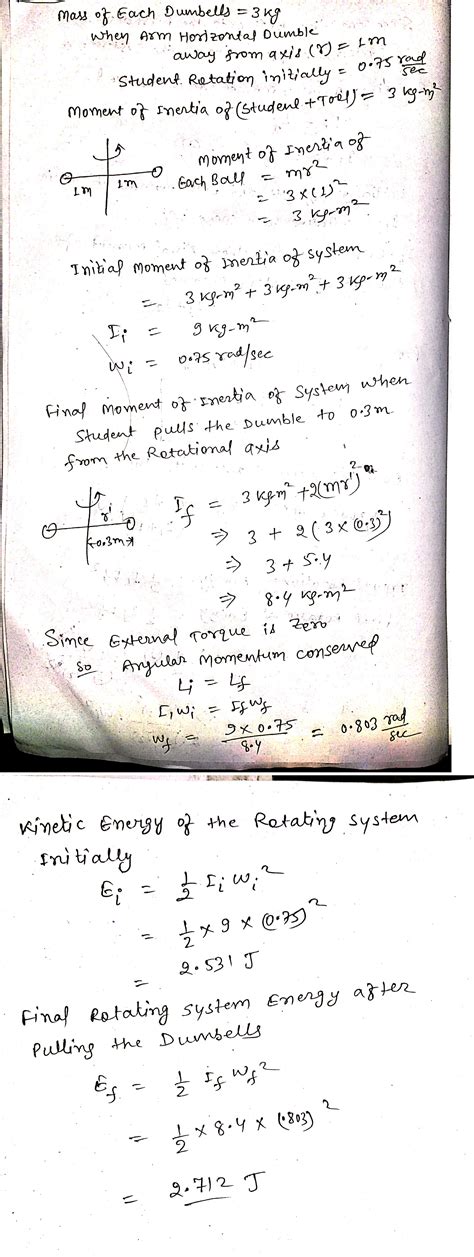 Mass of Each Dumbells = 3 kg
When Arm Horizontal Dumble
away from axis (r) = 1m
Student Rotation initially = 0.75 rad/sec
Moment of Inertia of (Student + Tool) = 3 kg-m²
1m 1m
Moment of Inertia of
Each Ball = mr²
= 3×(1)²
= 3 kg-m²
Initial Moment of Inertia of System
= 3 kg-m² + 3 kg-m² + 3 kg-m²
Ii = 9 kg-m²
wi = 0.75 rad/sec
Final Moment of Inertia of System When
Student pulls the Dumble to 0.3m
from the Rotational axis
r'
0.3m
If = 3 kgm² + 2(mr')²
⇒ 3 + 2(3×(0.3)²)
⇒ 3 + 5.4
⇒ 8.4 kg-m²
Since External Torque is Zero
So Angular Momentum conserved
Li = Lf
Iiwi = Ifwf
wf = 9×0.75/8.4 = 0.803 rad/sec
Kinetic Energy of the Rotating System
Initially
Ei = 1/2 Ii wi²
= 1/2 × 9 × (0.75)²
= 2.531 J
Final Rotating System Energy after
Pulling the Dumbells
Ef = 1/2 If wf²
= 1/2 × 8.4 × (.803)²
= 2.712 J